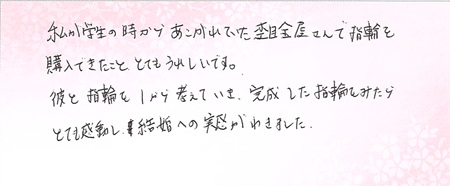 私が学生の時からあこがれていた杢目金屋さんで指輪を
購入できたこと、とてもうれしいです。
彼と指輪を1から考えていき、完成した指輪をみたら
とても感動し、結婚への実感がわきました。